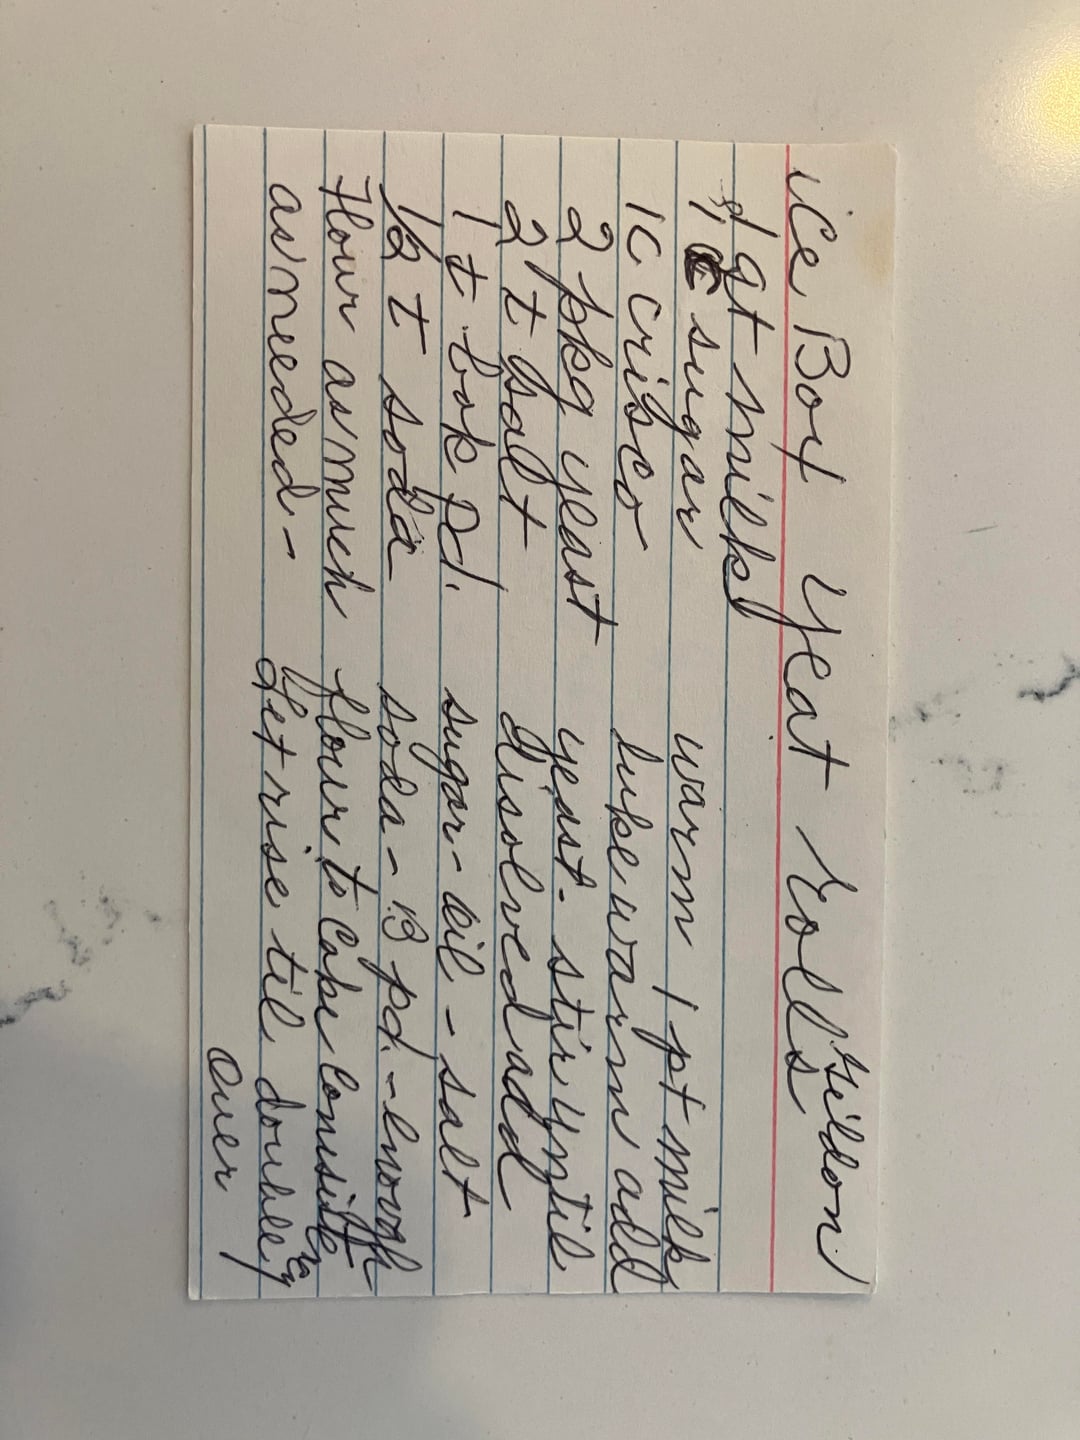 ice Box yeat rolls Gildon
1 qt milk
1 c sugar
1 c crisco
2 pkg yeast
2 t salt
1 t bok pd.
1/2 t soda
Flour as much
as needed -
warm 1 pt milk
luke warm add
yeast - stir until
disolved add
sugar - oil - salt
soda - B pd. - enough
flour to cake consistency
Let rise til double
over